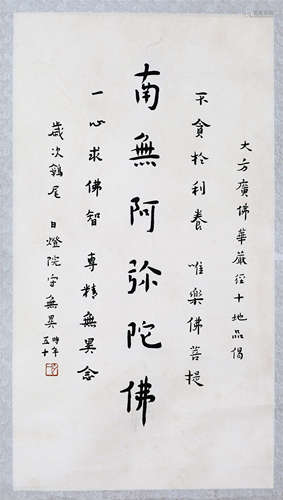 大方廣佛華嚴經十地品偈
不貪於利養 唯樂佛菩提
南無阿弥陀佛
一心求佛智 專精無異念
歲次鶉尾 日燈院字無異 時年五十